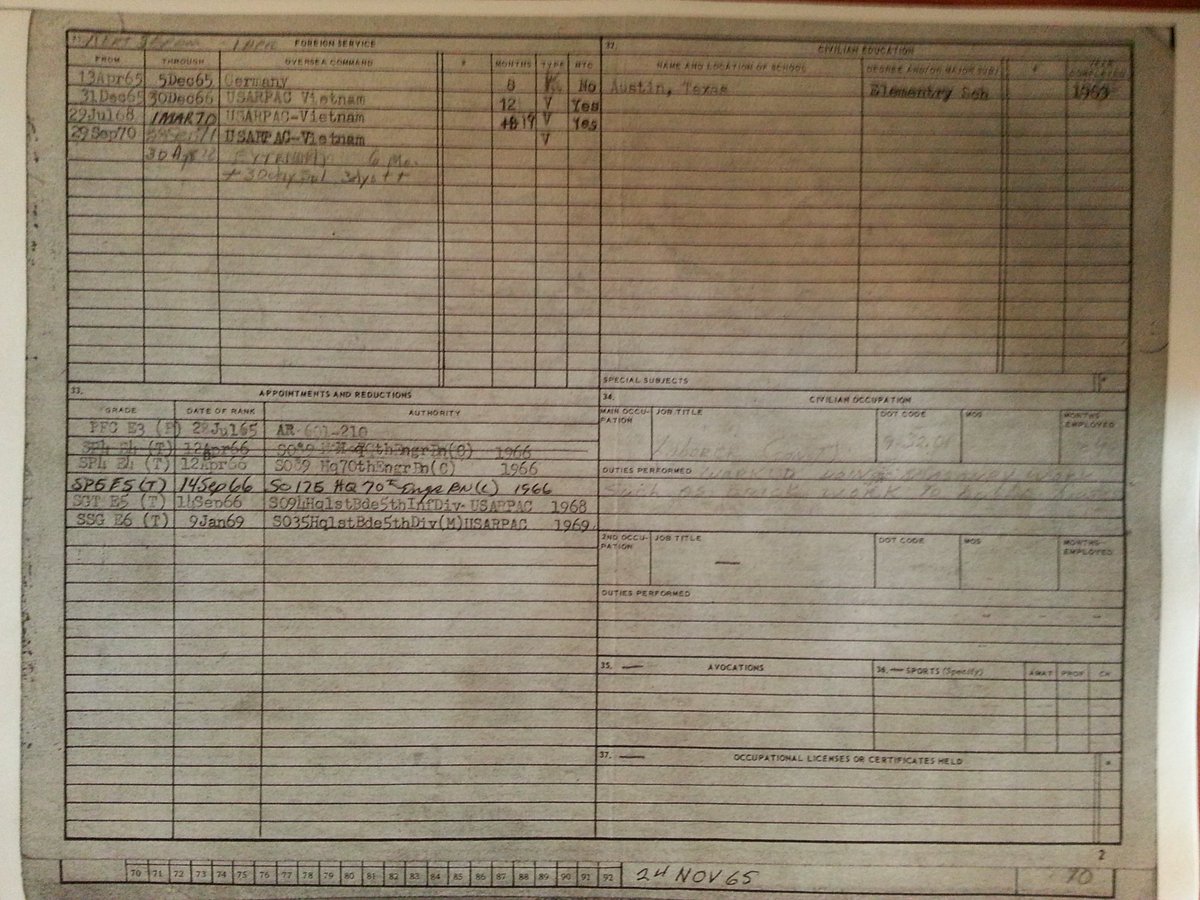 31. FOREIGN SERVICE
FROM THROUGH OVERSEA COMMAND * MONTHS TYPE RTC
13Apr65 5Dec65 Germany 8 No
31Dec65 30Dec66 USARPAC Vietnam 12 V Yes
29Jul68 1MAR70 USARPAC-Vietnam 19 V Yes
29Sep70 USARPAC-Vietnam V
30 Apr 6 Mo.
32. CIVILIAN EDUCATION
NAME AND LOCATION OF SCHOOL DEGREE AND/OR MAJOR SUBJ * YEAR COMPLETED
Austin, Texas Elementry Sch
SPECIAL SUBJECTS *
33. APPOINTMENTS AND REDUCTIONS
GRADE DATE OF RANK AUTHORITY
PFC E3 (P) 22Jul65 AR 601-210
SP4 E4 (T) 12Apr66 SO89 Hq70thEngrBn(C) 1966
SP4 E4 (T) 12Apr66 SO89 Hq70thEngrBn(C) 1966
SP5 E5 (T) 14Sep66 SO 175 HQ 70th Engr BN (C) 1966
SGT E5 (T) 14Sep66 SO94Hq1stBde5thInfDiv-USARPAC 1968
SSG E6 (T) 9Jan69 SO35Hq1stBde5thDiv(M)USARPAC 1969
34. CIVILIAN OCCUPATION
MAIN OCCUPATION JOB TITLE DOT CODE MOS MONTHS EMPLOYED
DUTIES PERFORMED
2ND OCCUPATION JOB TITLE DOT CODE MOS MONTHS EMPLOYED
—
DUTIES PERFORMED
35. — AVOCATIONS
36. — SPORTS (Specify) AMAT PROF CH
37. — OCCUPATIONAL LICENSES OR CERTIFICATES HELD *
2
70 71 72 73 74 75 76 77 78 79 80 81 82 83 84 85 86 87 88 89 90 91 92 24 NOV 65